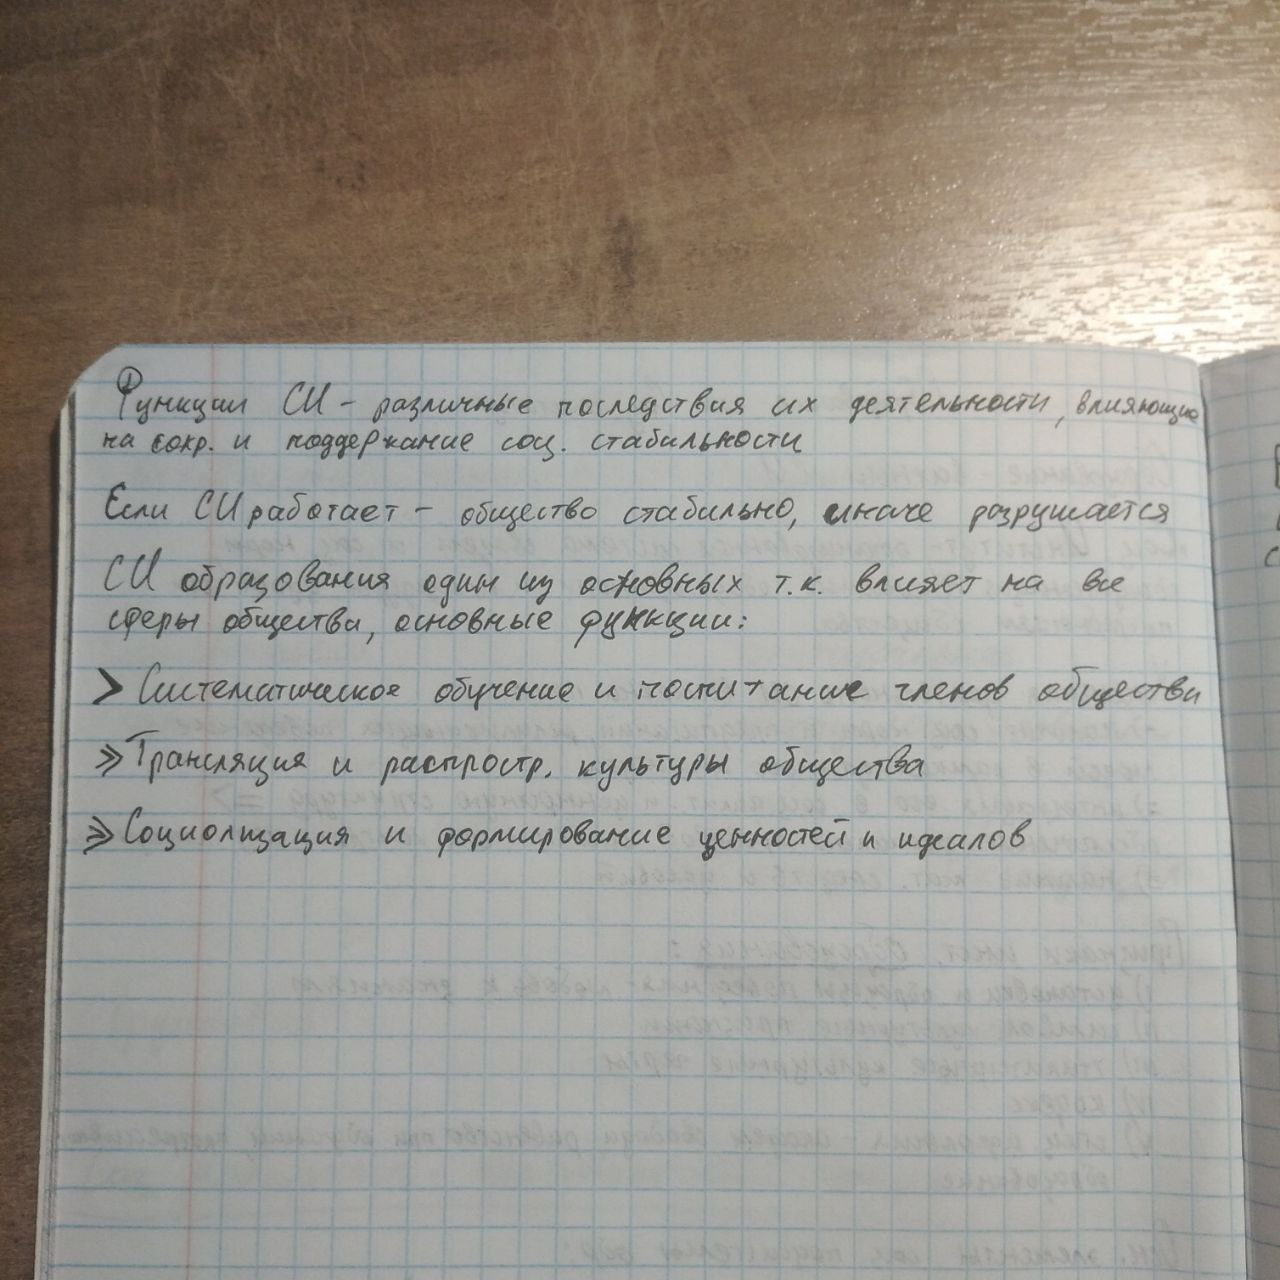 Функции СИ - различные последствия их деятельности, влияющие
на сохр. и поддержание соц. стабильности
Если СИ работает - общество стабильно, иначе разрушается
СИ образования один из основных т.к. влияет на все
сферы общества, основные функции:
> Систематическое обучение и воспитание членов общества
> Трансляция и распростр. культуры общества
> Социолизация и формирование ценностей и идеалов